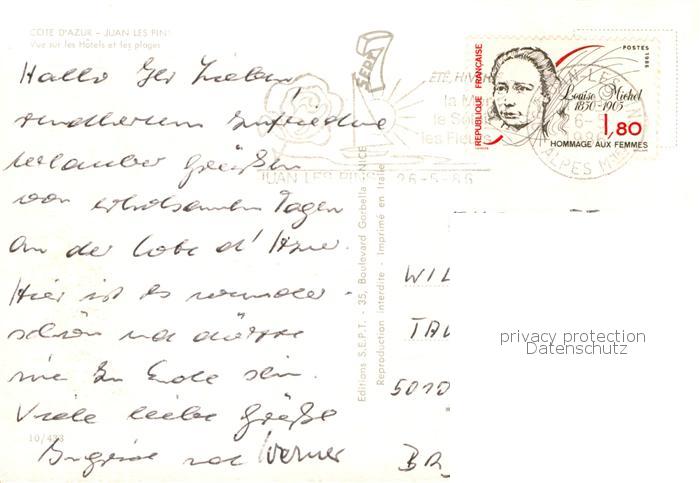 COTE D'AZUR – JUAN LES PINS
Vue sur les Hôtels et les plages
Hallo Ihr Lieben,
rundherum zufriedene
Urlauber grüßen
von erholsamen Tagen
an der Cote d'Azur.
Hier ist es wunder-
schön und dürfte
nie zu Ende sein.
Viele liebe Grüße
und Werner
10/433
SEPT
ÉTÉ, HIVER
la M
le So
les Fle
JUAN LES PINS 26-5-86
REPUBLIQUE FRANÇAISE
POSTES 1986
Louise Michel
1830-1905
1,80
HOMMAGE AUX FEMMES
JUAN-LES-
ALPES M
Editions S.E.P.T. - 35, Boulevard Gorbella - NICE
Reproduction interdite - Imprimé en Italie
WIL
TAU
5010
privacy protection
Datenschutz